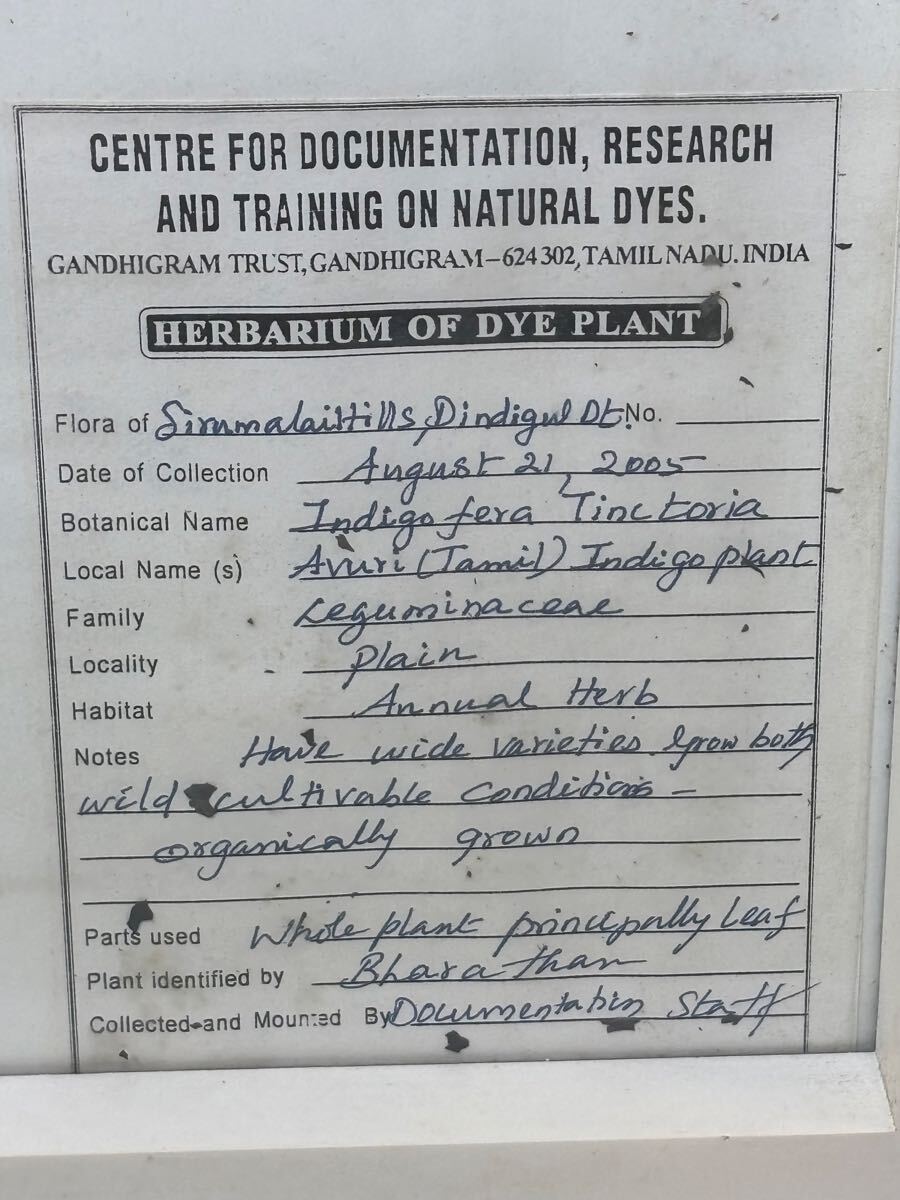 CENTRE FOR DOCUMENTATION, RESEARCH
AND TRAINING ON NATURAL DYES.
GANDHIGRAM TRUST, GANDHIGRAM–624 302, TAMIL NADU. INDIA
HERBARIUM OF DYE PLANT
Flora of Sirumalai Hills, Dindigul Dt. No.
Date of Collection August 21, 2005
Botanical Name Indigofera Tinctoria
Local Name (s) Avuri (Tamil) Indigo plant
Family Leguminaceae
Locality Plain
Habitat Annual Herb
Notes Have wide varieties grow both
wild cultivable conditions –
organically grown
Parts used Whole plant principally Leaf
Plant identified by Bharathan
Collected and Mounted By Documentation Staff